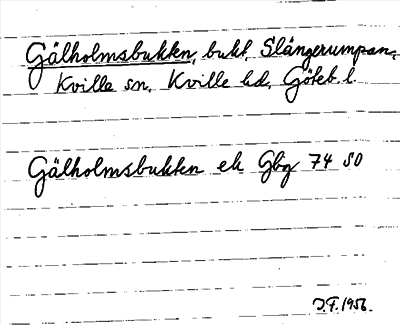 Gålholmsbukten, bukt, Slångerumpan,
Kville sn, Kville hd, Göteb. l.
Gålholmsbukten ek Gbg 74 SO
J.F. 1956.